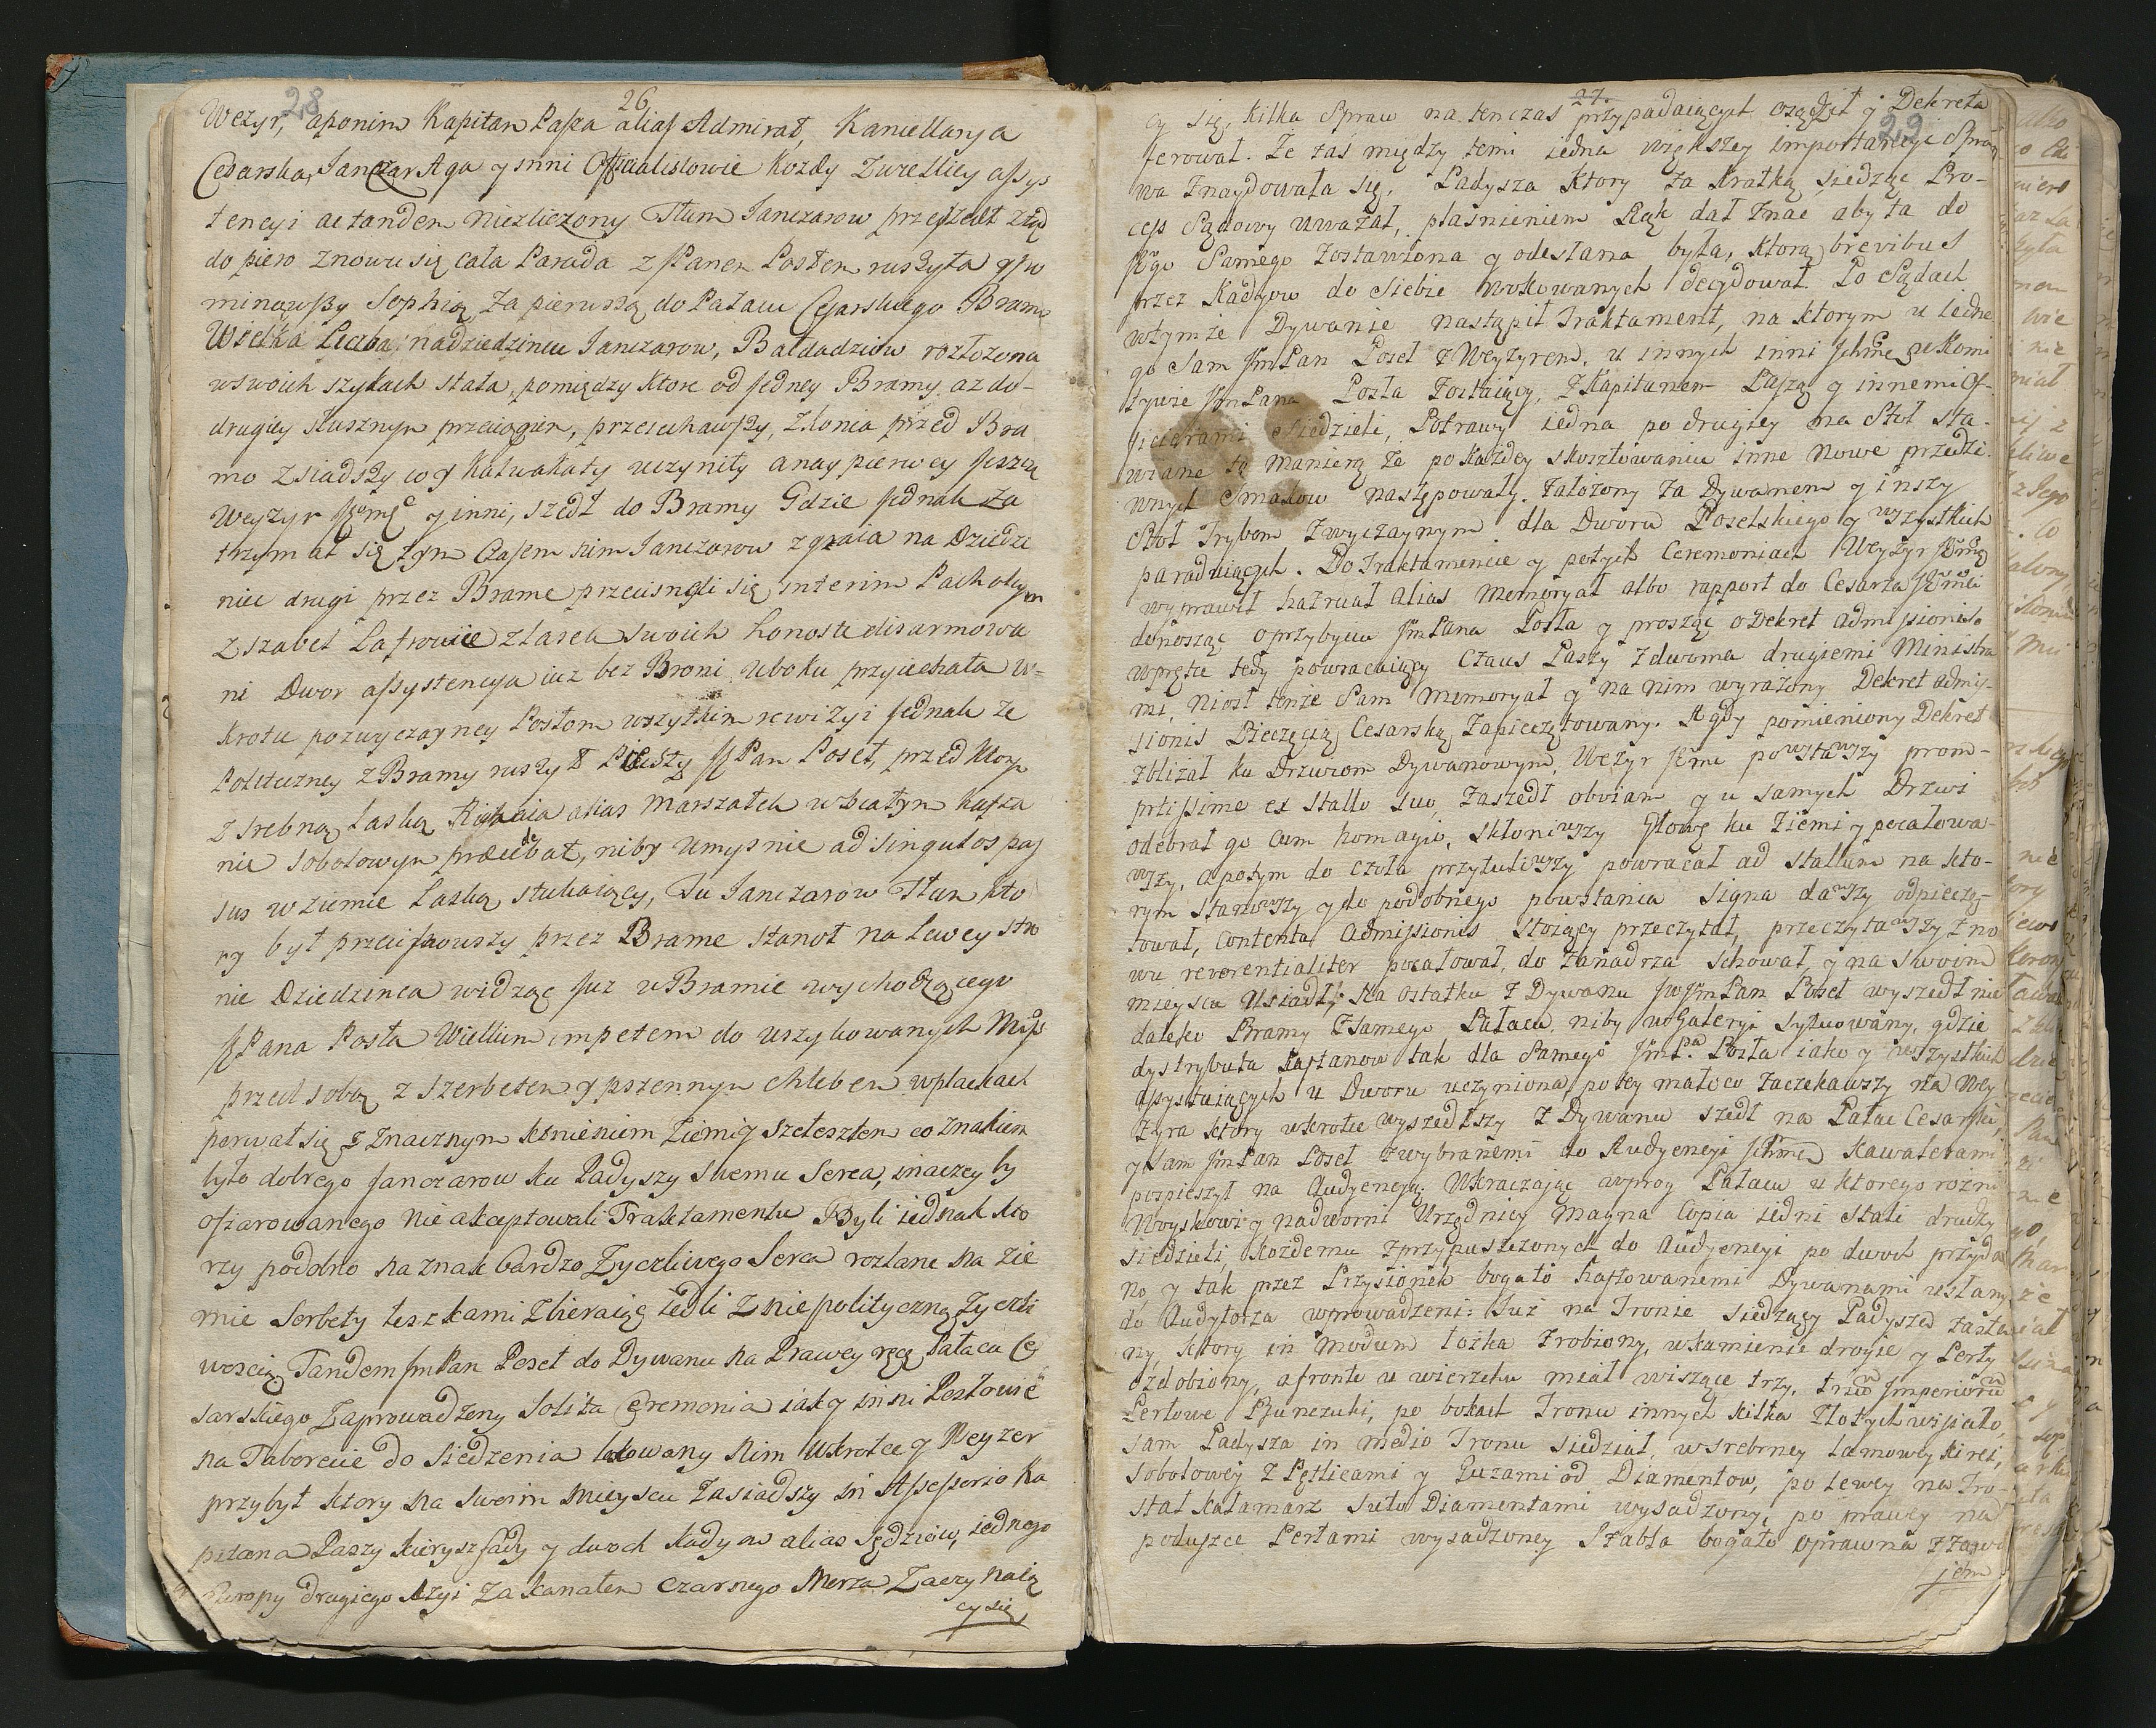 28
26
Wezyr, aponim Kapitan Pasza alias Admirał, Kancellarya
Cesarska, Janczar Aga y inni Officialistowie Kozdy z wielkiey assys
tencyi ac tandem niezliczony Tłum Janczarow przeszedł ztąd
do piero znowu się cała Parada z JPanem Posłem ruszyła y
minąwszy Sophią, za pierwszą do Pałacu Cesarskiego Bramą
Wielka Liczba nadziedzincu Janczarow, Bałdadziow rozłożona
wswoich szykach stała, pomiędzy ktore od jedney Bramy az do-
drugiey słusznym przeciągiem, przeiechawszy, z Konia przed Bra
mo zsiadszy co y Kałwakaty uczyniły a nay pierwey jeszcze
Weyzyr Jgomć y inni, szedł do Bramy Gdzie jednak za
trzymał się tym czasem nim Janczarow zgraia na Dziedzi
niec drugi przez Brame przecisnęli się, interim Pachołcy
z szabel Laffowie z lasek swoich honoste disarmowa
ni Dwor assystencya iuz bez Broni uboku przyiechała w-
krotce pozwyczayney Posłom wszytkim rewizyi jednak ze
Polituczney z Bramy ruszył Pieszy JPan Poseł, przed Ktorym
z srebną Laską Kichaia alias Marszałek w białym kafta
nie sobolowym praecedebat, niby umyslnie ad singulos pas
sus w ziemie Laską stukaiący, Tu Janczarow Tłum kto
ry był przecisnowszy przez Brame stanoł na Lewey stro
nie Dziedzinca widząc juz w Bramie wychodzącego
JPana Posła Wielkim impetem do uszykowanych Mis
przed sobą z szerbetem y pszennym chlebem w plackach
porwał się z znacznym tętnieniem ziemi y szelesztem co znakiem
było dobrego Janczarow ku Padyszy swemu Serca, inaczey by
ofiarowanego nie akceptowali Traktamentu. Byli iednak kto
rzy podobno na znak bardzo Zyczliwego Serca rozlane na zie
mie Serbety leszkami zbieraiąc iedli z nie polityczną Zyczli
woscią. Tandem JmPan Poseł do Dywanu na Prawey ręce Pałacu Ce
sarskiego Zaprowadzony Solita Ceremonia iak y inni Posłowie
na Taborecie do siedzenia lokowany Nim wkrotce y Weyzer
przybył ktory na swoim mieyscu zasiadszy in Assessorio Ka
pitana Paszy Kieryszfady y dwoch Kadyow alias Sędziow, iednego
Europy drugiego Azyi za kanałem Czarnego Morza Zaczynaią
cy się
27.
29
cy się, kilka Spraw na tenczas przypadaiących osądził y Dekreta
ferował. Że zaś między temi iedna większey importancyi Spra
wa znaydowała się, Padysza ktory za Kratką siedząc Pro-
cess Sądowy uważał, plaśnieniem Rąk dał znać aby ta do
Jgo Samego zostawiona y odesłana była, ktorą brevibus
przez Kadyow do siebie wokowanych decydował. Po Sądach
wtymże Dywanie nastąpił Traktament, na ktorym u iedne
go Sam JmPan Poseł z Weyzyrem, u innych inni Jchmć w Komi
tywie JmPana Posła zostaiący, z Kapitanem Paszą y innemi Of-
ficierami siedzieli, Potrawy iedna po drugiey na Stoł sta-
wiane tą manierą że po każdey skosztowaniu inne nowe przedzi-
wnych Smakow następowały. Założony za Dywanem y inszy
Stoł Trybom zwyczaynym dla Dworu Poselskiego y wszystkich
paraduiących. Po Traktamencie y potych Ceremoniach Weyzyr Jmć
wyprawił hatruał alias memoryał albo rapport do Cesarza Jgomci
donosząc o przybyciu JmPana Posła y prosząc o Dekret admissionis.
wprętce tedy powracaiący Czaus Paszy z dwoma drugiemi Ministra
mi, niosł tenże Sam memoryał y na nim wyrażony Dekret admis-
sionis Pieczęcią Cesarską zapieczętowany. A gdy pomieniony Dekret
zbliżał ku Drzwiom Dywanowym, Wezyr Jmć powstawszy prom-
ptissime ex stallo suo zaszedł obviam y u samych Drzwi
odebrał go cum homagio, skłoniwszy głowę ku Ziemi y pocałowa-
wszy, apotym do czoła przytuliwszy powracał ad stallum na kto-
rym stanowszy y do podobnego powstania signa dawszy odpieczę-
tował, contenta admissionis stoiący przeczytał, przeczytawszy zno
wu reverentialiter pocałował, do zanadrza schował, y na swoim
mieyscu usiadł. Na ostatku z Dywanu JwJmPan Poseł wyszedł nie
daleko Bramy z samego Pałacu, niby w Galeryi sytuowany, gdzie
dystrybuta Kaftanow tak dla Samego JmPa. Posła iako y wszystkich
assystuiących u Dworu uczyniona, po tey mało co zaczekawszy na Wey
zyra ktory wkrotce wyszedłszy z Dywanu szedł na Pałac Cesarski,
y sam JmPan Poseł z wybranemi do Audyencyi Jchmć Kawalerami
pospieszył na Audyencyą. Wkraczaiąc w prog Pałacu u ktorego rożni
Woyskowi y nadworni Urzędnicy magna copia iedni stali drudzy
siedzieli, Kozdemu z przypuszczonych do Audyencyi po dwoch przyda
no y tak przez Przysionek bogato haftowanemi Dywanami usłany
do Audytorza wprowadzeni: Już na Tronie siedzący Padysza zasta
ny, ktory in modum łożka zrobiony, w kamienie drogie y Perły
ozdobiony, a fronte u wierzchu miał wiszące trzy, triũ Imperiorũ
Perłowe Bunczuki, po bokach Tronu innych kilka złotych wisiało,
sam Padysza in medio Tronu siedział, w srebrney lamowey kirei,
sobolowey z Pętlicami y Guzami od Diamentow, po lewey na Tro-
stał kałamarz suto Diamentami wysadzony, po prawey na
poduszce Perłami wysadzoney Szabla bogato oprawna z zawo
jem